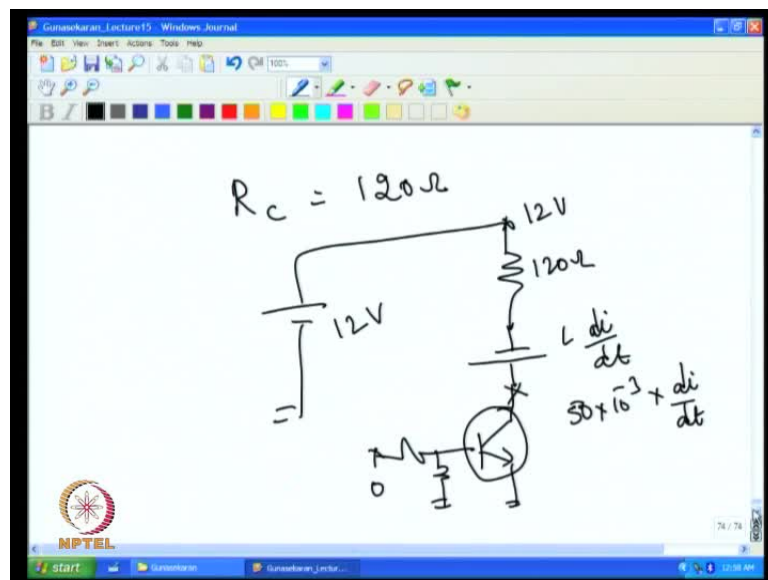 Gunasekaran_Lecture15 - Windows Journal
File Edit View Insert Actions Tools Help
100%
B I
R_C = 120Ω
12V
120Ω
12V
L di/dt
50 × 10^-3 × di/dt
0
NPTEL
74 / 74
start
Gunasekaran
Gunasekaran_Lectur...
12:58 AM